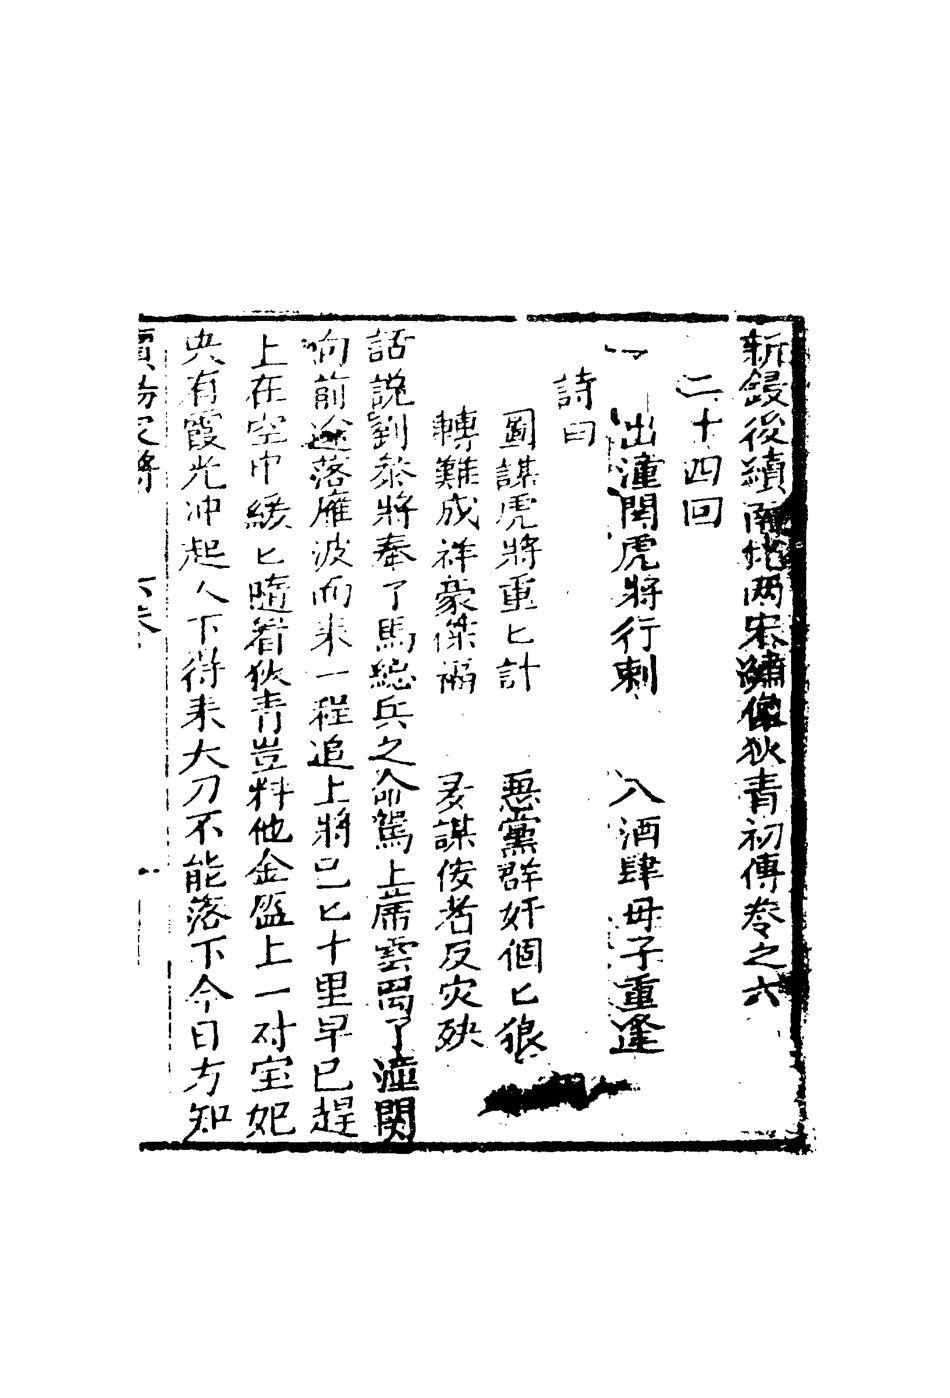 新鋟後續南北两宋繡像狄青初傳卷之六
二十四回
出潼関虎將行刺　入酒肆母子重逢
詩曰
圖謀虎將重匕計　惡黨群奸個匕狼
轉難成祥豪傑福　多謀俊者反灾殃
話說劉叅將奉了馬總兵之命駕上蓆雲离了潼関
向前途落雁波而来一程追上將已匕十里早已趕
上在空中緩匕隨着狄青豈料他金盔上一对宝妃
央有霞光冲起人下得来大刀不能落下今日方知